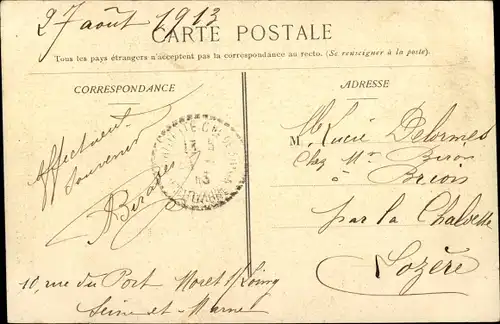 27 août 1913
CARTE POSTALE
Tous les pays étrangers n'acceptent pas la correspondance au recto. (Se renseigner à la poste).
CORRESPONDANCE
ADRESSE
Affectueux
Souvenir
10, rue du Port Moret s/ Loing
Seine-et-Marne
M lle Lucie Delormes
Chez Mr
à Brion
par la Chaldette
Lozère